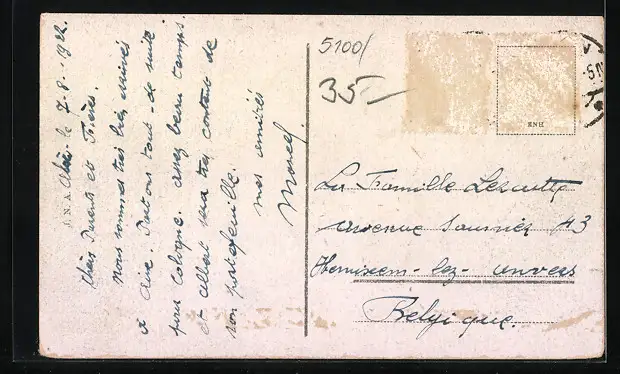 le 7.8.1922
Chers Parents et Frères.
Nous sommes très bien arrivés
à Aix. Partons tout de suite
pour Cologne. assez beau temps.
et Albert sera très content de
son portefeuille.
mes amitiés
Marcel
J.N.A.
5100/
35-
ENH
La Famille
avenue Saunier 43
Hemixem-lez-anvers
Belgique.